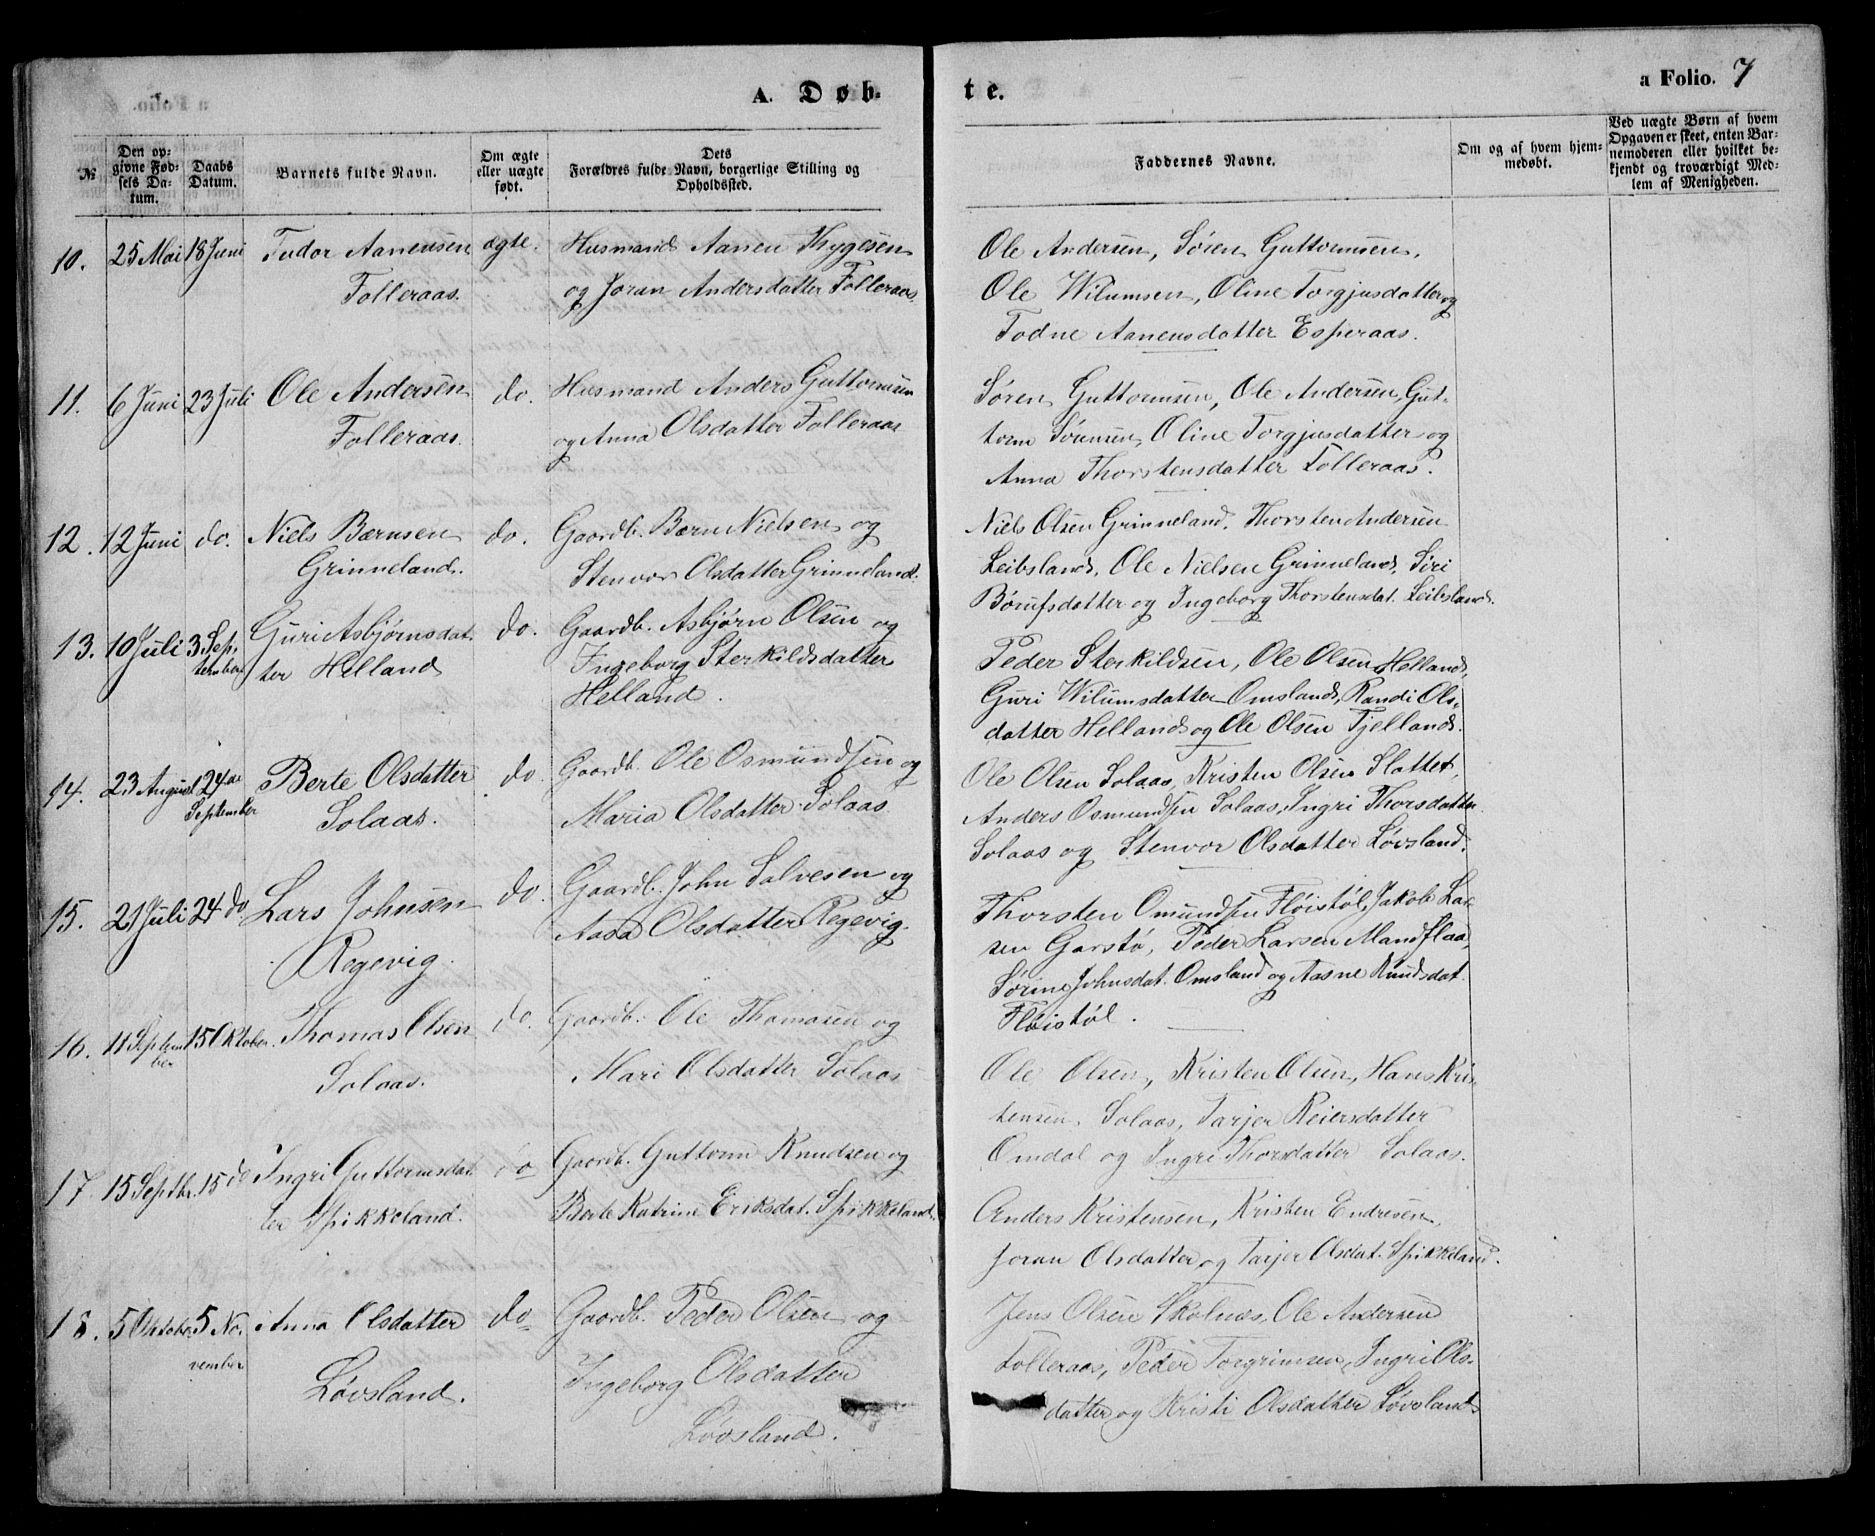 A. Døb-
te.
a Folio. 7
№
Den op-
givne Fød-
sels Da-
tum.
Daabs
Datum.
Barnets fulde Navn.
Om ægte
eller uægte
født.
Dets
Forældres fulde Navn, borgerlige Stilling og
Opholdssted.
Faddernes Navne.
Om og af hvem hjem-
medøbt.
Ved uægte Børn af hvem
Opgaven er skeet, enten Bar-
nemoderen eller hvilket be-
kjendt og troværdigt Med-
lem af Menigheden.
10. 25 Mai 18 Juni Tudor Aanensen ægte. Husmand Aanen Thygesen
Folleraas. og Joran Andersdatter Folleraas.
Ole Andersen, Søren Guttormsen,
Ole Wilumsen, Oline Torgjusdatter og
Todne Aanensdatter Esperaas.
11. 6 Juni 23 Juli Ole Andersen do. Husmand Anders Guttormsen
Folleraas. og Anna Olsdatter Folleraas
Søren Guttormsen, Ole Andersen, Gut-
torm Sørensen, Oline Torgjusdatter og
Anna Thorstensdatter Folleraas.
12. 12 Juni do. Niels Bærnsen do. Gaardb. Bærn Nielsen og
Grinneland. Stenvor Olsdatter Grinneland.
Niels Olsen Grinneland, Thorsten Andersen
Leibsland, Ole Nielsen Grinneland, Siri
Børufsdatter og Ingeborg Thorstensdat. Leibsland.
13. 10 Juli 3 Sep- Guri Asbjørnsdat- do. Gaardb. Asbjørn Olsen og
tember ter Helland Ingeborg Sterkildsdatter
Helland.
Peder Sterkildsen, Ole Olsen Helland,
Guri Wilumsdatter Omsland, Randi Ols-
datter Helland og Ole Olsen Tjelland.
14. 23 August 24de Berte Olsdatter do. Gaardb. Ole Osmundsen og
September Solaas. Maria Olsdatter Solaas.
Ole Olsen Solaas, Kristen Olsen Slattet,
Anders Osmundsen Solaas, Ingri Thorsdatter
Solaas og Stenvor Olsdatter Løvsland.
15. 21 Juli 24 do Lars Johnsen do. Gaardb. John Salvesen og
Røgevig. Aasa Olsdatter Røgevig.
Thorsten Omundsen Fløistøl, Jakob Lar-
sen Garstø, Peder Larsen Mandflaa,
Sørine Johnsdat. Omsland og Aasne Knudsdat.
Fløistøl.
16. 11 Septem- 15 Oktober. Thomas Olsen do. Gaardb. Ole Thomasen og
ber Solaas. Mari Olsdatter Solaas
Ole Olsen, Kristen Olsen, Hans Kris-
tensen Solaas, Tarjer Reiersdatter
Omdal og Ingri Thorsdatter Solaas.
17. 15 Septbr. 15 do Ingri Guttormsdat- do Gaardb. Guttorm Knudsen og
ter Spikkeland. Berte Katrine Eriksdat. Spikkeland.
Anders Kristensen, Kristen Endresen,
Joran Olsdatter og Tarjer Olsdat. Spikkeland.
18. 5 Oktober 5 No- Anna Olsdatter do Gaardb. Peder Olsen og
vember Løvsland. Ingeborg Olsdatter
Løvsland.
Jens Olsen Skolnæs, Ole Andersen
Folleraas, Peder Torgrimsen, Ingri Ols-
datter og Kristi Olsdatter Løvsland